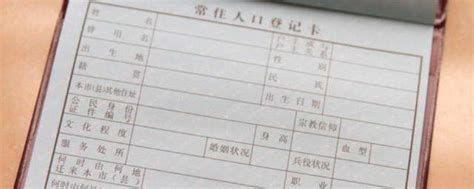 常住人口登记卡
姓名 户主或与户主关系
曾用名 性别
出生地 民族
籍贯 出生日期
本市（县）其他住址 宗教信仰
公民身份证件编号 身高 血型
文化程度 婚姻状况 兵役状况
服务处所 职业
何时由何地迁来本市（县）
何时由何